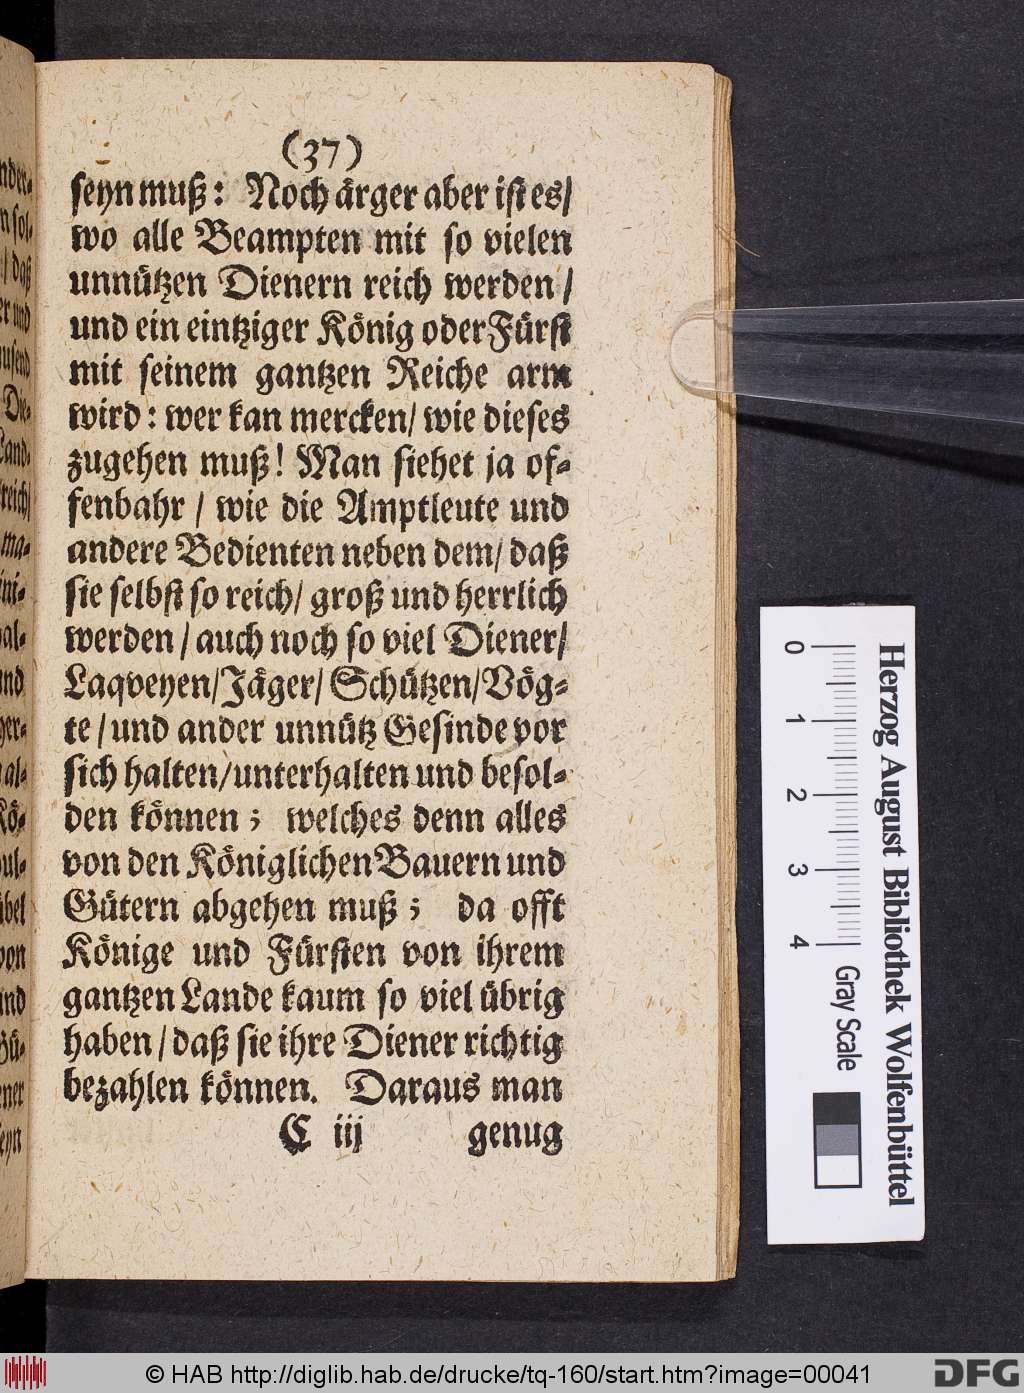 (37)
seyn muß: Noch ärger aber ist es/
wo alle Beampten mit so vielen
unnützen Dienern reich werden /
und ein eintziger König oder Fürst
mit seinem gantzen Reiche arm
wird: wer kan mercken/ wie dieses
zugehen muß! Man siehet ja of-
fenbahr / wie die Amptleute und
andere Bedienten neben dem/ daß
sie selbst so reich/ groß und herrlich
werden / auch noch so viel Diener/
Laqveyen/Jäger/ Schützen/Vög-
te / und ander unnütz Gesinde vor
sich halten/unterhalten und besol-
den können; welches denn alles
von den Königlichen Bauern und
Gütern abgehen muß; da offt
Könige und Fürsten von ihrem
gantzen Lande kaum so viel übrig
haben / daß sie ihre Diener richtig
bezahlen können. Daraus man
C iij genug
nder-
n sol-
/ daß
er und
ausend
Die-
Land-
reich/
ma-
ini-
al-
und
ger-
al-
Kö-
ul-
übel
von
und
Gü-
ener
seyn
0 1 2 3 4
Gray Scale
Herzog August Bibliothek Wolfenbüttel
© HAB http://diglib.hab.de/drucke/tq-160/start.htm?image=00041
DFG